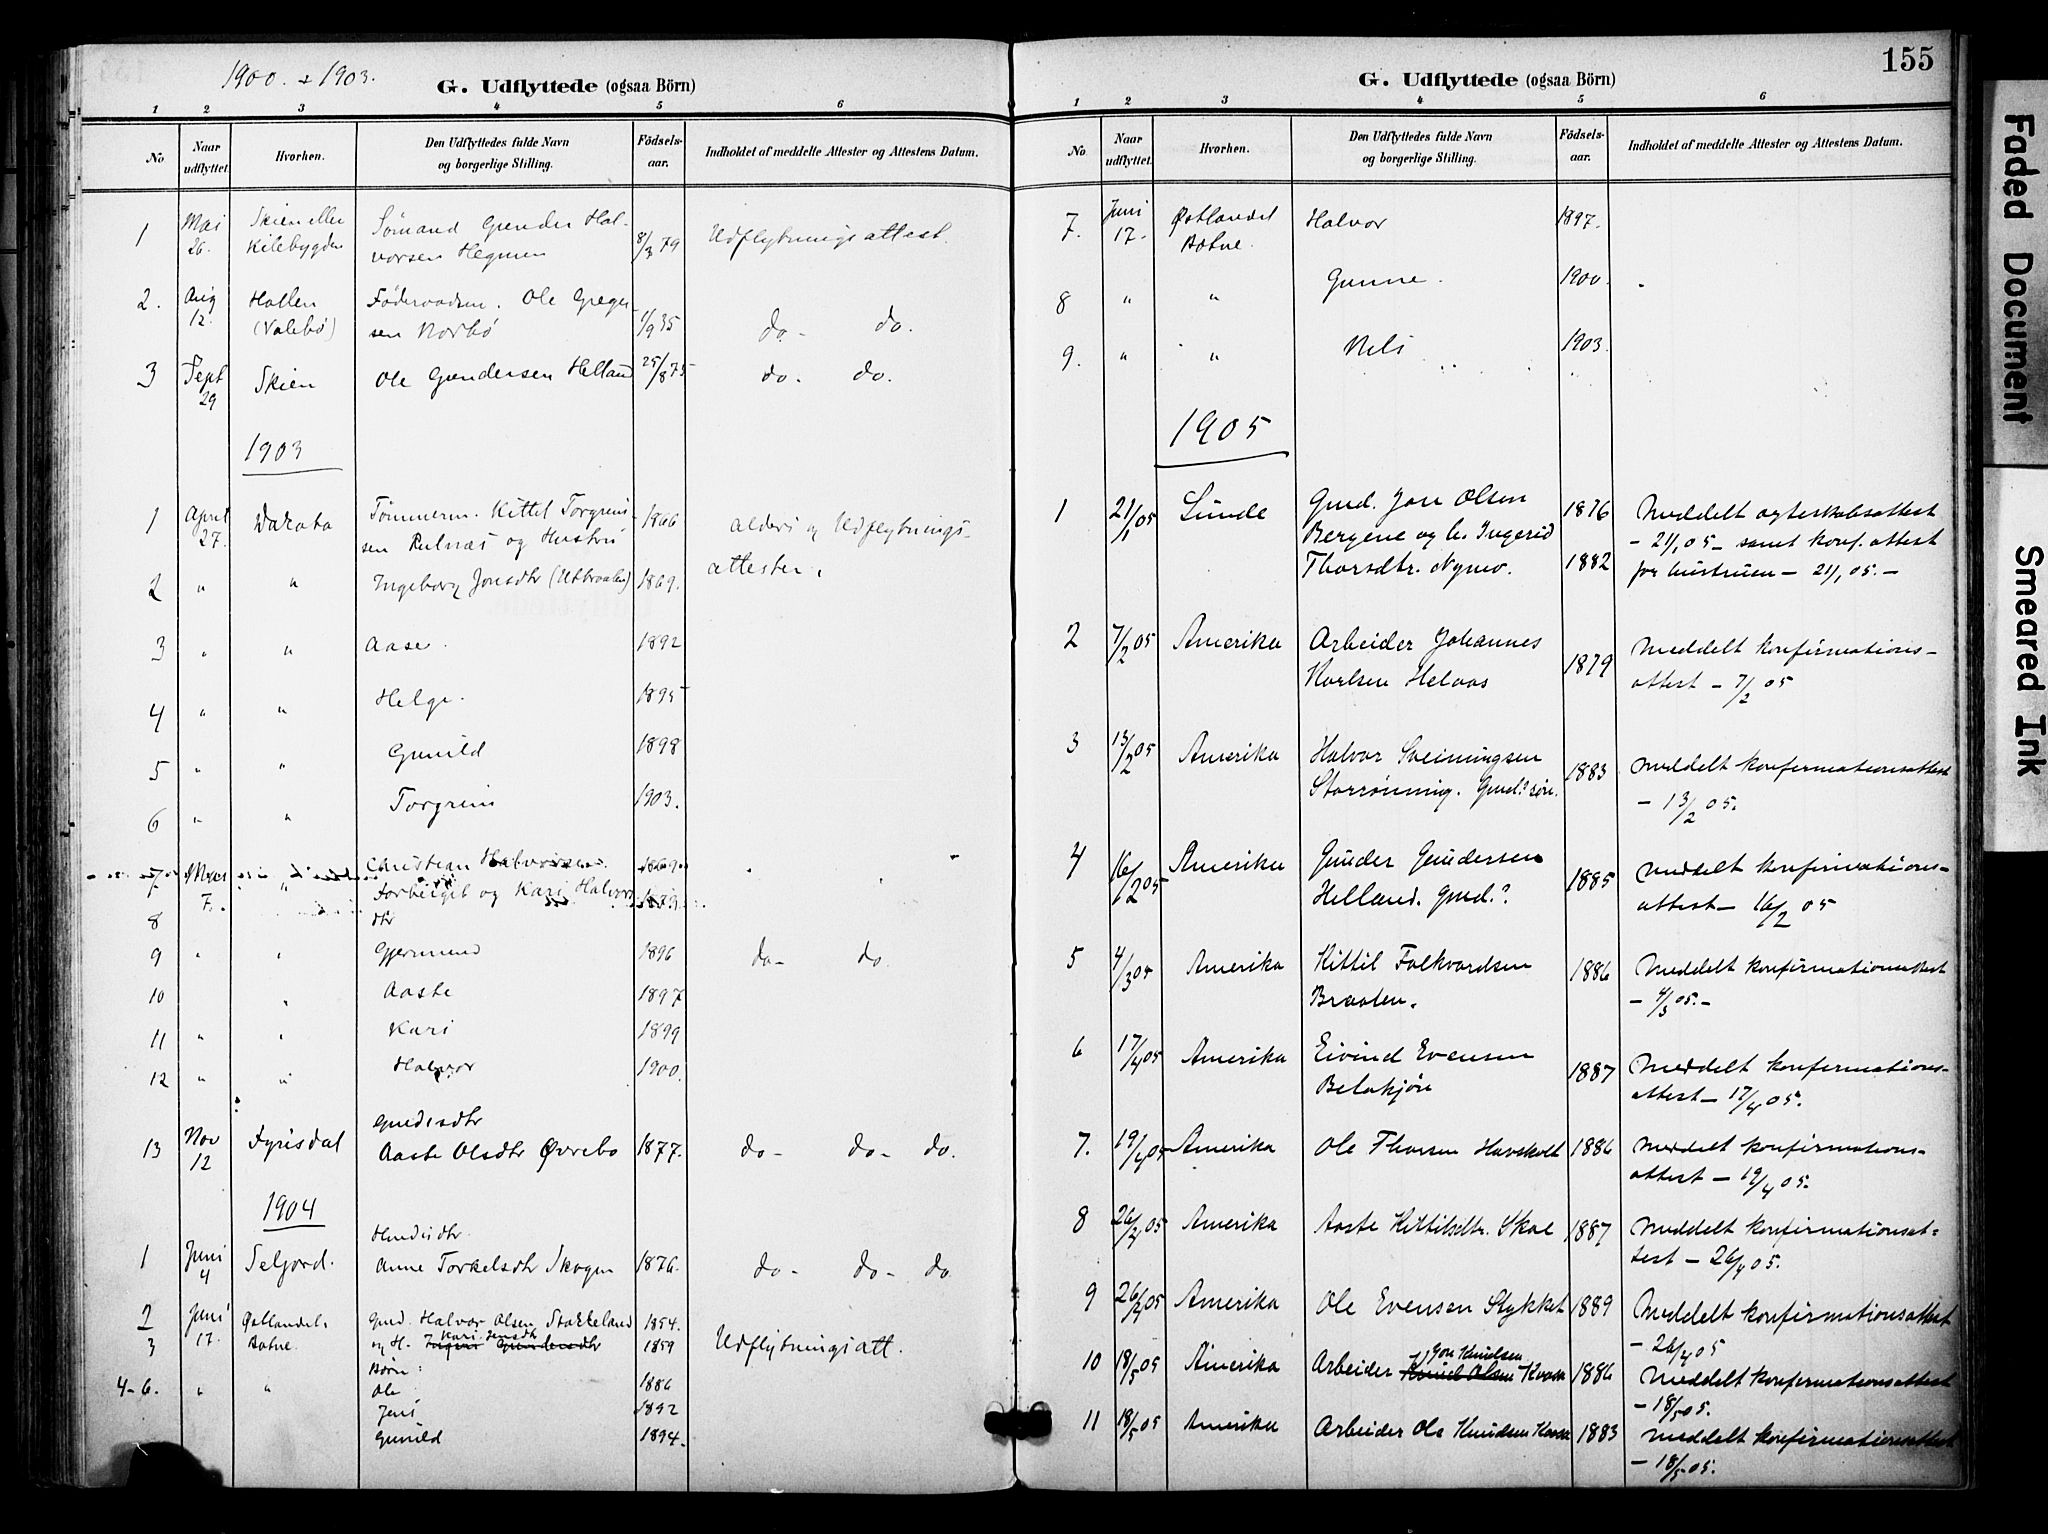 1900. & 1903.
G. Udflyttede (ogsaa Börn)
1 2 3 4 5 6
No
Naar udflyttet.
Hvorhen.
Den Udflyttedes fulde Navn og borgerlige Stilling.
Födsels-aar.
Indholdet af meddelte Attester og Attestens Datum.
1 Mai 26. Skien eller Kilebygden Sømand Gunder Hal-
vorsen Hegnun 8/3 79 Udflytningsattest.
2. Aug 12. Hollen (Valebø) Føderaadsm. Ole Greger-
sen Norbø 1/9 35 do- do.
3 Sept 29 Skien Ole Gundersen Helland 25/8 75 do. do.
1903
1 April 27. Dakota Tømmerm. Kittil Torgrim-
sen Rulnæs og Hustru 1866 Alders og Udflytnings-
2 " " Ingeborg Jonsdtr (Utbraaten) 1869. attester.
3 " " Aase. 1892
4 " " Helge. 1895
5 " " Gunild 1898
6 " " Torgrim 1903.
7 Mai 7. " Christian Halvorsen 1869
Forberget og Kari Halvors
8 dtr
9 " " Gjermund 1896 do- do
10 " Aaste 1897
11 " " Kari 1899
12 " " Halvor 1900.
Gmdisdtr
13 Nov 12 Fyrisdal Aaste Olsdtr Øvrebø 1877. do- do- do.
1904
Hmdisdtr.
1 Juni 4 Seljord. Anne Torkelsdtr Skogen 1876. do- do- do
2 Juni 17. Østlandet. Gmd. Halvor Olsen Stokkeland 1854.
3 Botne. og H. Kari Jensdtr Ingeri Gundersdtr 1859 Udflytningsatt.
Børn:
4-6. " " Ole 1886
Jens 1892
Gunild 1894.
155
G. Udflyttede (ogsaa Börn)
1 2 3 4 5 6
No
Naar udflyttet.
Hvorhen.
Den Udflyttedes fulde Navn og borgerlige Stilling.
Födsels-aar.
Indholdet af meddelte Attester og Attestens Datum.
7. Juni 17. Østlandet Botne. Halvor 1897.
8 " " Gunne. 1900.
9. " " Nils 1903.
1905
1 21/1 05 Lunde Gmd. Jon Olsen 1876 Meddelt ægteskabsattest
Bergene og h. Ingerid - 21/1 05 - samt konf. attest
Thorsdtr. Nymo. 1882 for hustruen - 21/1 05. -
2 7/2 05 Amerika Arbeider Johannes 1879 Meddelt konfirmations-
Karlsen Helaas attest - 7/2 05
3 13/2 05 Amerika Halvor Sveinungsen 1883 Meddelt konfirmationsattest
Storrønning. Gmd.s søn. - 13/2 05.
4 16/2 05 Amerika Gunder Gundersen 1885 Meddelt konfirmations-
Helland. Gmd.? attest - 16/2 05
5 4/3 05 Amerika Kittil Folkvardsen 1886 Meddelt konfirmationsattest
Braaten. - 4/3 05. -
6 17/4 05 Amerika Eivind Evensen 1887 Meddelt konfirmations-
Belakjøn attest - 17/4 05.
7. 19/4 05 Amerika Ole Thorsen Havskolt 1886 Meddelt konfirmations-
attest - 19/4 05.
8 26/4 05 Amerika Aaste Kittilsdtr. Skoe 1887 Meddelt konfirmationsat-
test - 26/4 05.
9 26/4 05 Amerika Ole Evensen Stykket 1889 Meddelt konfirmationsattest
- 26/4 05
10 18/5 05 Amerika Arbeider Jon Knudsen Knud Olsen Kaasa 1886 Meddelt konfirmationsattest
- 18/5 05.
11 18/5 05 Amerika Arbeider Ole Knudsen Kaasa 1883 Meddelt konfirmationsattest
- 18/5 05.
Faded Document
Smeared Ink